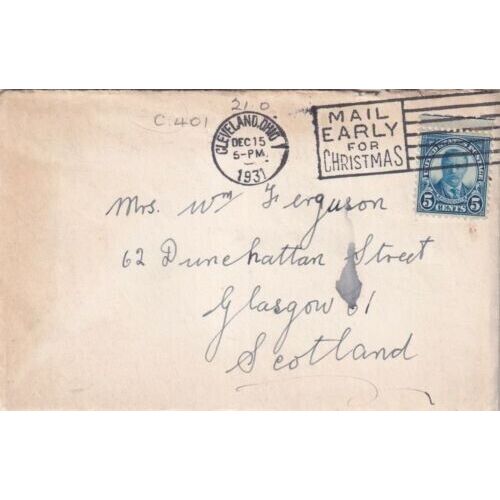 21.0
C.401
CLEVELAND, OHIO
DEC 15
5-PM
1931
MAIL
EARLY
FOR
CHRISTMAS
5 CENTS 5
Mrs. Wm Ferguson
62 Dunchattan Street
Glasgow E1
Scotland